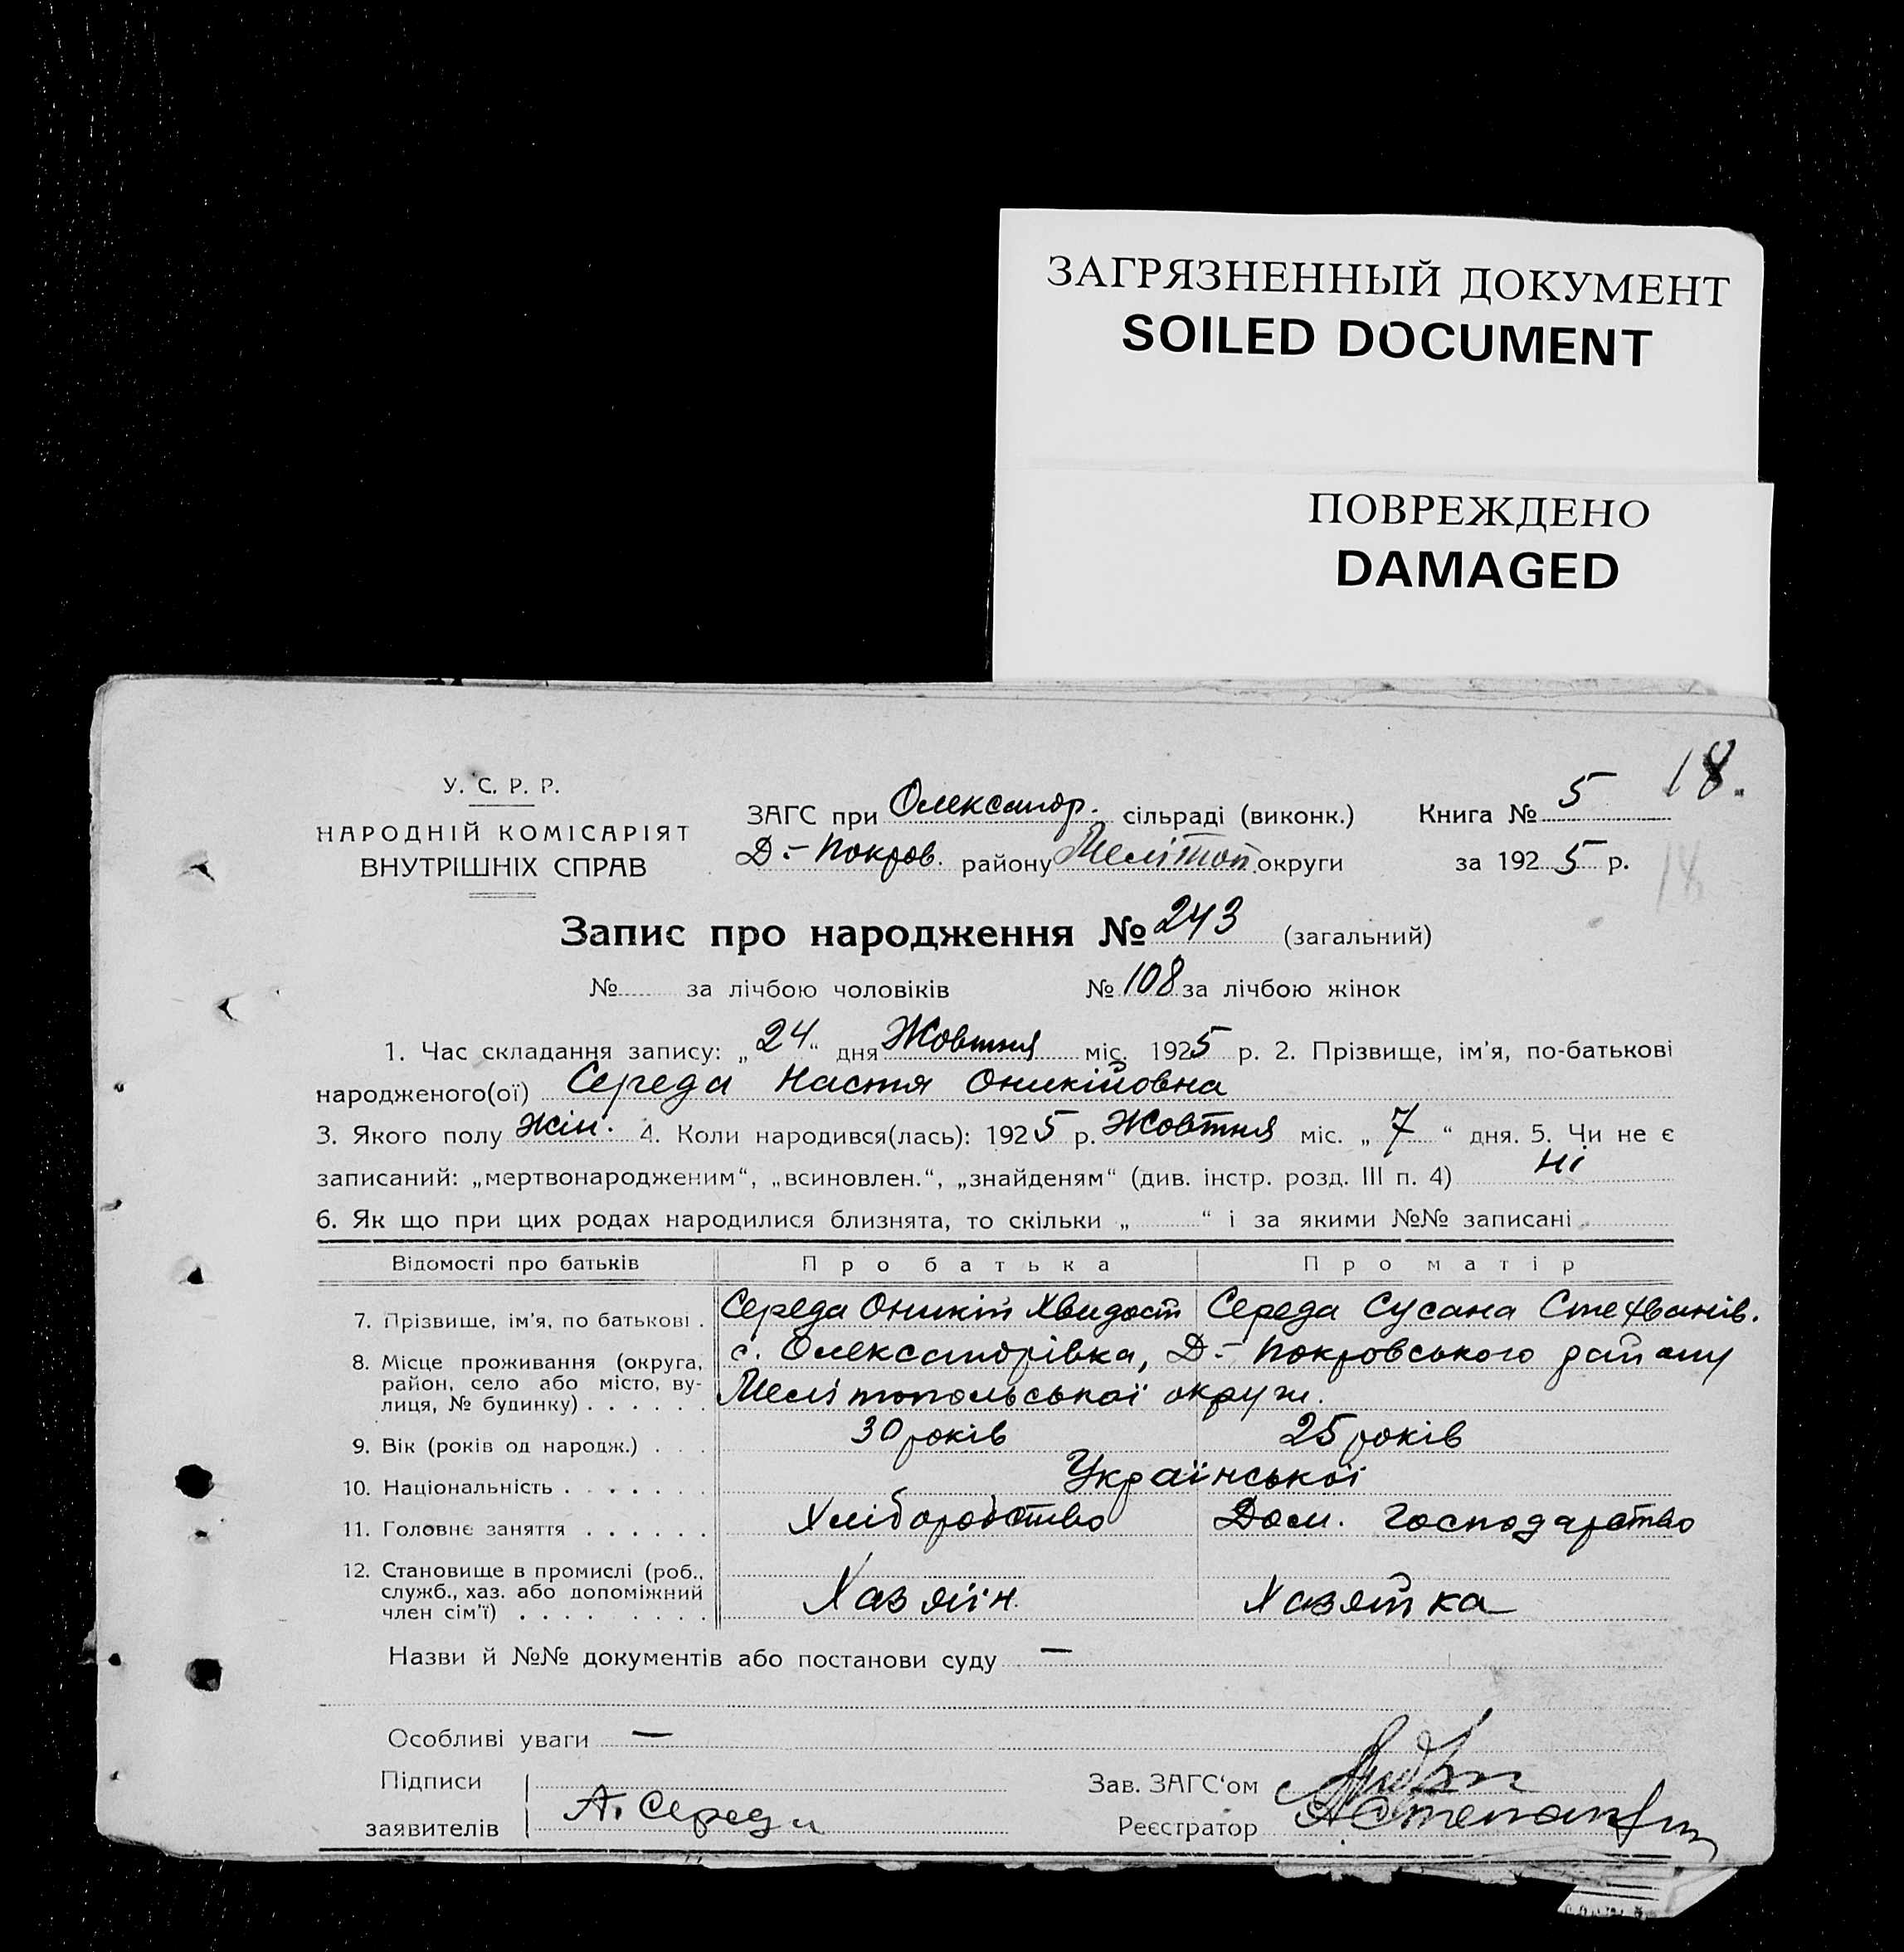 ЗАГРЯЗНЕННЫЙ ДОКУМЕНТ
SOILED DOCUMENT
ПОВРЕЖДЕНО
DAMAGED
18.
18
У. С. Р. Р.
НАРОДНІЙ КОМІСАРІЯТ
ВНУТРІШНІХ СПРАВ
ЗАГС при Олександр. сільраді (виконк.) Книга № 5
Д.-Покров. району Мелітоп. округи за 1925 р.
Запис про народження № 243 (загальний)
№ за лічбою чоловіків № 108 за лічбою жінок
1. Час складання запису: „24“ дня Жовтня міс. 1925 р. 2. Прізвище, ім’я, по-батькові
народженого(ої) Середа Настя Оникійовна
3. Якого полу жін. 4. Коли народився(лась): 1925 р. Жовтня міс. „7“ дня. 5. Чи не є
записаний: „мертвонародженим“, „всиновлен.“, „знайденям“ (див. інстр. розд. III п. 4) ні
6. Як що при цих родах народилися близнята, то скільки „ “ і за якими №№ записані
Відомості про батьків Про батька Про матір
7. Прізвище, ім’я, по батькові . Середа Оникій Хвидост Середа Сусана Стехванів.
8. Місце проживання (округа, с. Олександрівка, Д.-Покровського району
район, село або місто, ву-
лиця, № будинку) . . . . . . Мелітопольської округи.
9. Вік (років од народж.) . . . 30 років 25 років
10. Національність . . . . . . . Української
11. Головнє заняття . . . . . . Хліборобство Дом. господарство
12. Становище в промислі (роб.,
служб., хаз. або допоміжний
член сім’ї) . . . . . . . . Хазяїн Хазяйка
Назви й №№ документів або постанови суду —
Особливі уваги —
Підписи Зав. ЗАГС‘ом
заявителів А. Середа Реєстратор